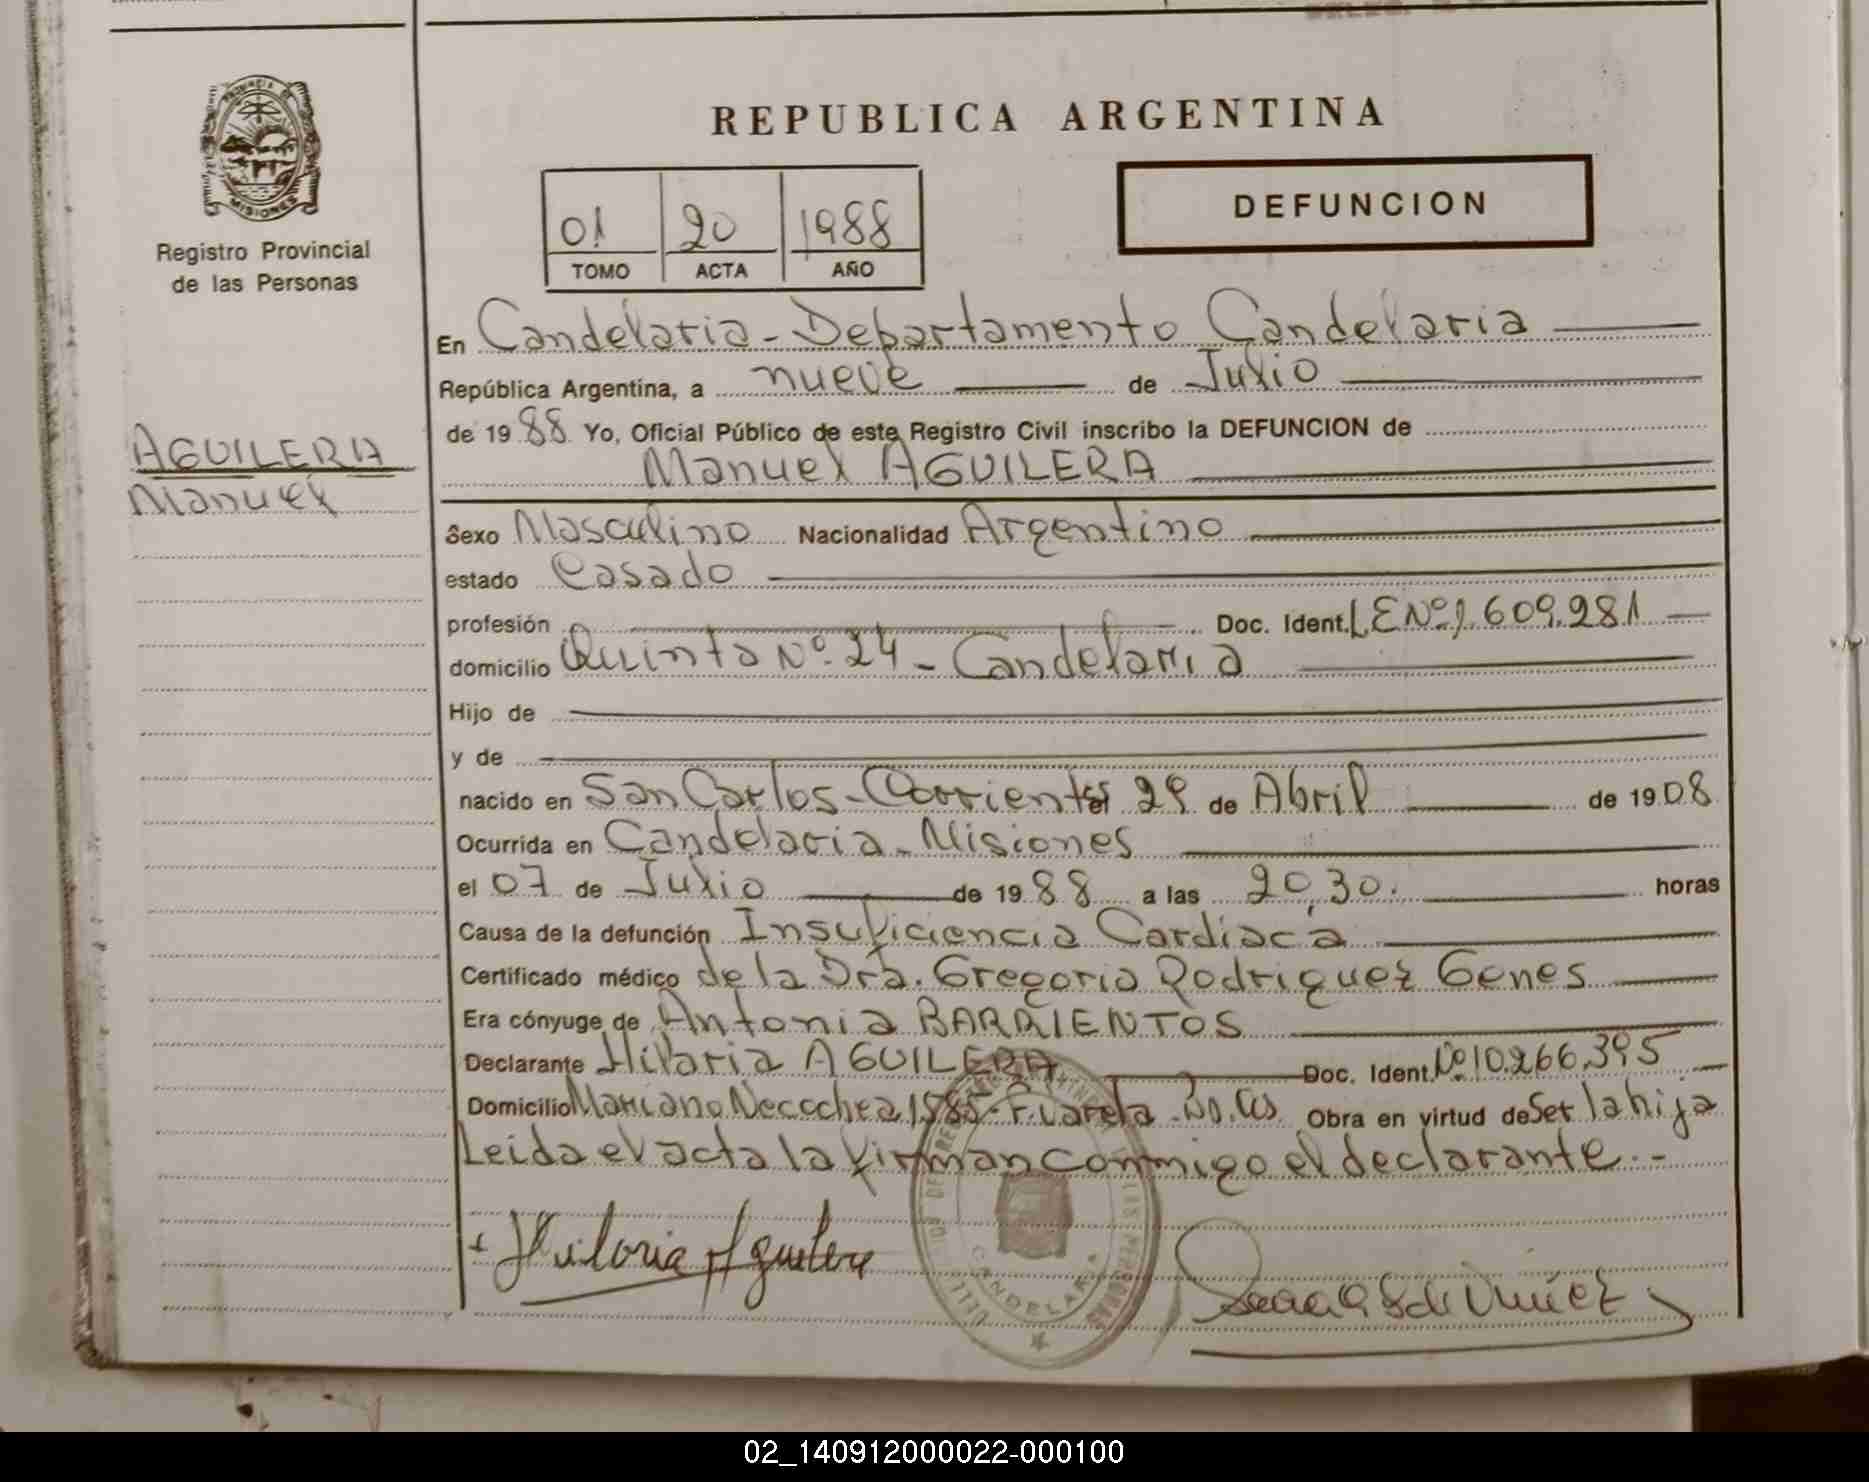 REPUBLICA ARGENTINA
PROVINCIA DE
MISIONES
Registro Provincial
de las Personas
01 20 1988
TOMO ACTA AÑO
DEFUNCION
En Candelaria - Departamento Candelaria
República Argentina, a nueve de Julio
de 1988 Yo, Oficial Público de este Registro Civil inscribo la DEFUNCION de
Manuel AGUILERA
AGUILERA
Manuel
Sexo Masculino Nacionalidad Argentino
estado Casado
profesión Doc. Ident. L.E Nº 1.609.281
domicilio Quinta Nº 24 - Candelaria
Hijo de
y de
nacido en San Carlos - Corrientes el 29 de Abril de 1908
Ocurrida en Candelaria - Misiones
el 07 de Julio de 1988 a las 20,30. horas
Causa de la defunción Insuficiencia Cardiaca
Certificado médico de la Dra. Gregoria Rodriguez Genes
Era cónyuge de Antonia BARRIENTOS
Declarante Hilaria AGUILERA Doc. Ident. Nº 10.266.395
Domicilio Mariano Necochea 1585 - F. Varela - Bs. As Obra en virtud de Ser la hija
Leida el acta la firman conmigo el declarante.-
Hilaria Aguilera
CANDELARIA
02_140912000022-000100